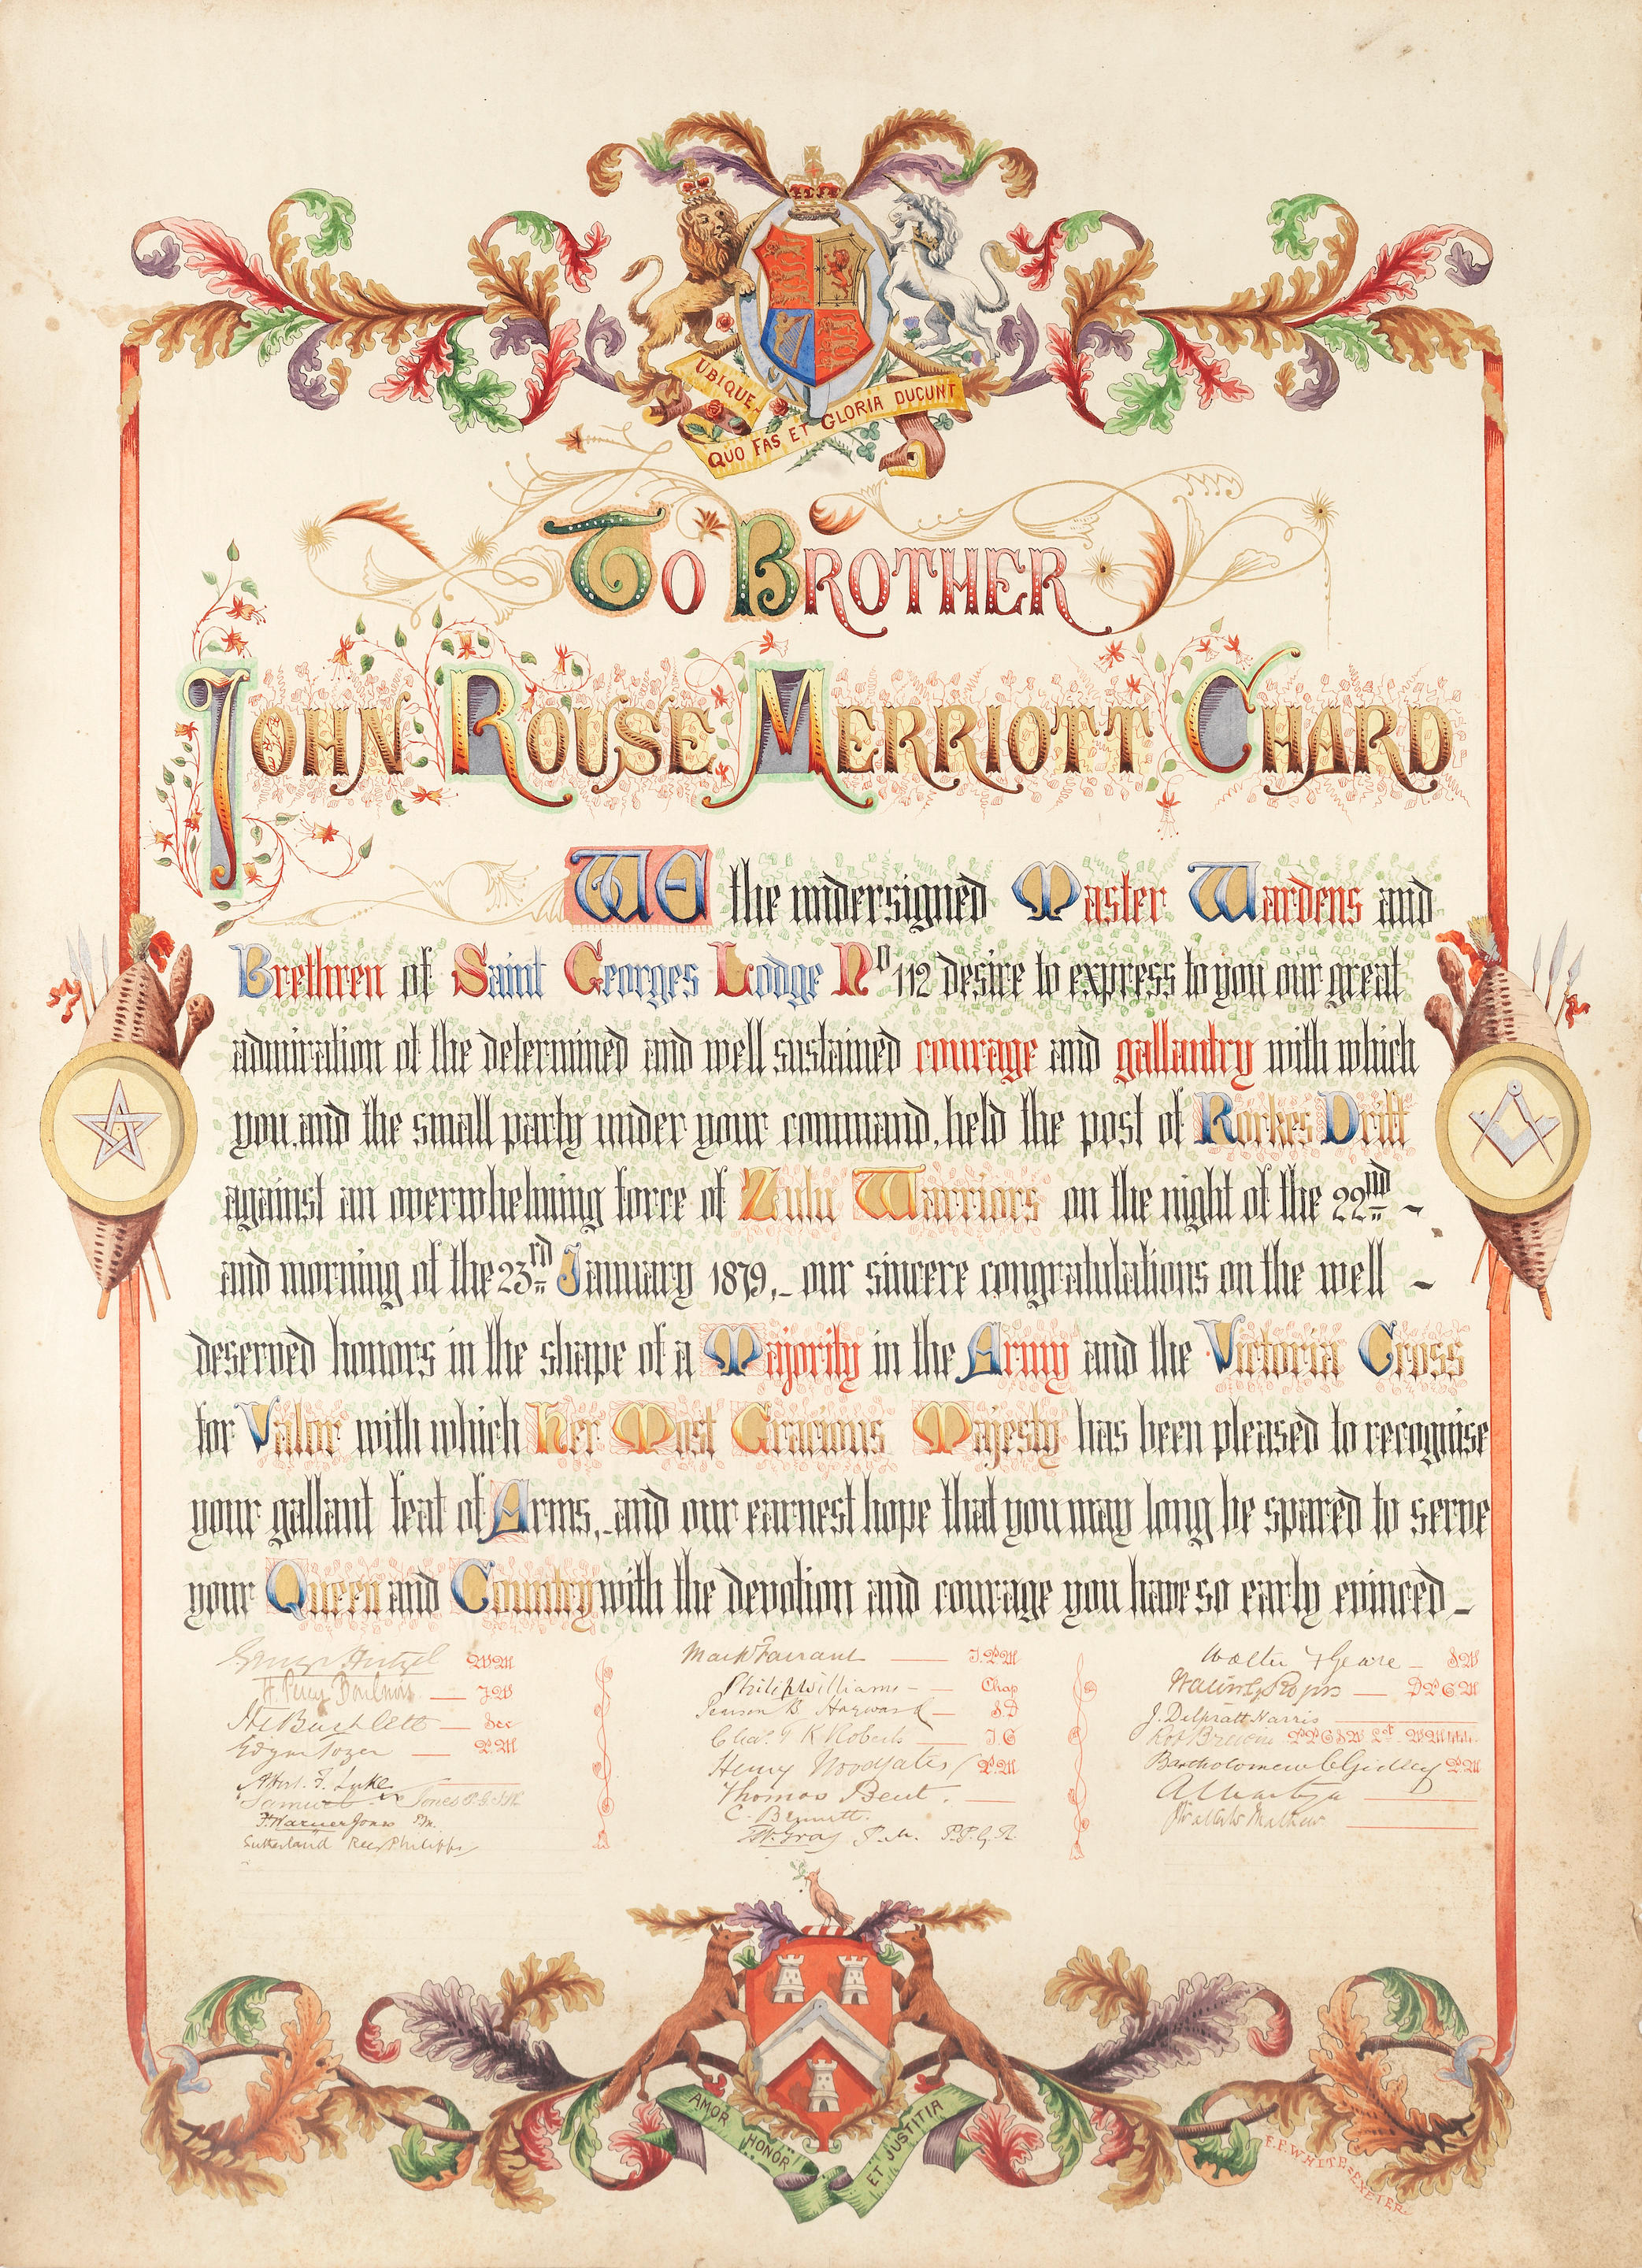 UBIQUE
QUO FAS ET GLORIA DUCUNT
TO BROTHER
JOHN ROUSE MERRIOTT CHARD
WE the undersigned Master Wardens and
Brethren of Saint Georges Lodge No 112 desire to express to you our great
admiration of the determined and well sustained courage and gallantry with which
you, and the small party under your command, held the post of Rorkes Drift
against an overwhelming force of Zulu Warriors on the night of the 22nd -
and morning of the 23rd January 1879,- our sincere congratulations on the well -
deserved honors in the shape of a Majority in the Army and the Victoria Cross
for Valor with which Her Most Gracious Majesty has been pleased to recognise
your gallant feat of Arms,-and our earnest hope that you may long be spared to serve
your Queen and Country with the devotion and courage you have so early evinced -
WM
Mark Farrant — I.P.M
Walter Geare — SW
H. Percy — JW
Philip Williams — Chap
— D P G M
— Sec
— S.D
J. Delpratt Harris
Edgar Tozer — P.M
Chas. K Roberts — I.G
Henry Woodgates P.M
Bartholomew C Gidley P.M
F. Luke
Thomas Bent.
Samuel Jones
C. Bennett.
F. Warner Jones P.M.
W. Gray P.M.
Mathew
Sutherland Rees Philipps
AMOR HONOR ET JUSTITIA
E.P. WHITE = EXETER